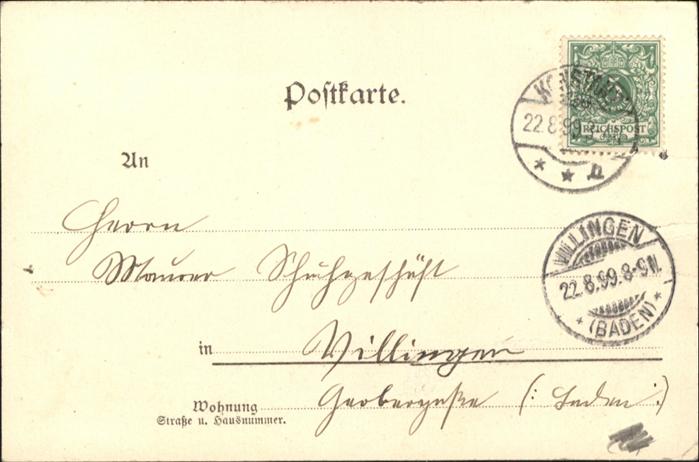 Postkarte.
KONSTANZ
22.8.99.
REICHSPOST
An
Herrn
VILLINGEN
22.8.99.8-9N.
(BADEN)
Maurer Schuhgeschäft
in Villingen
Wohnung Gerbergasse (: Baden :)
Straße u. Hausnummer.